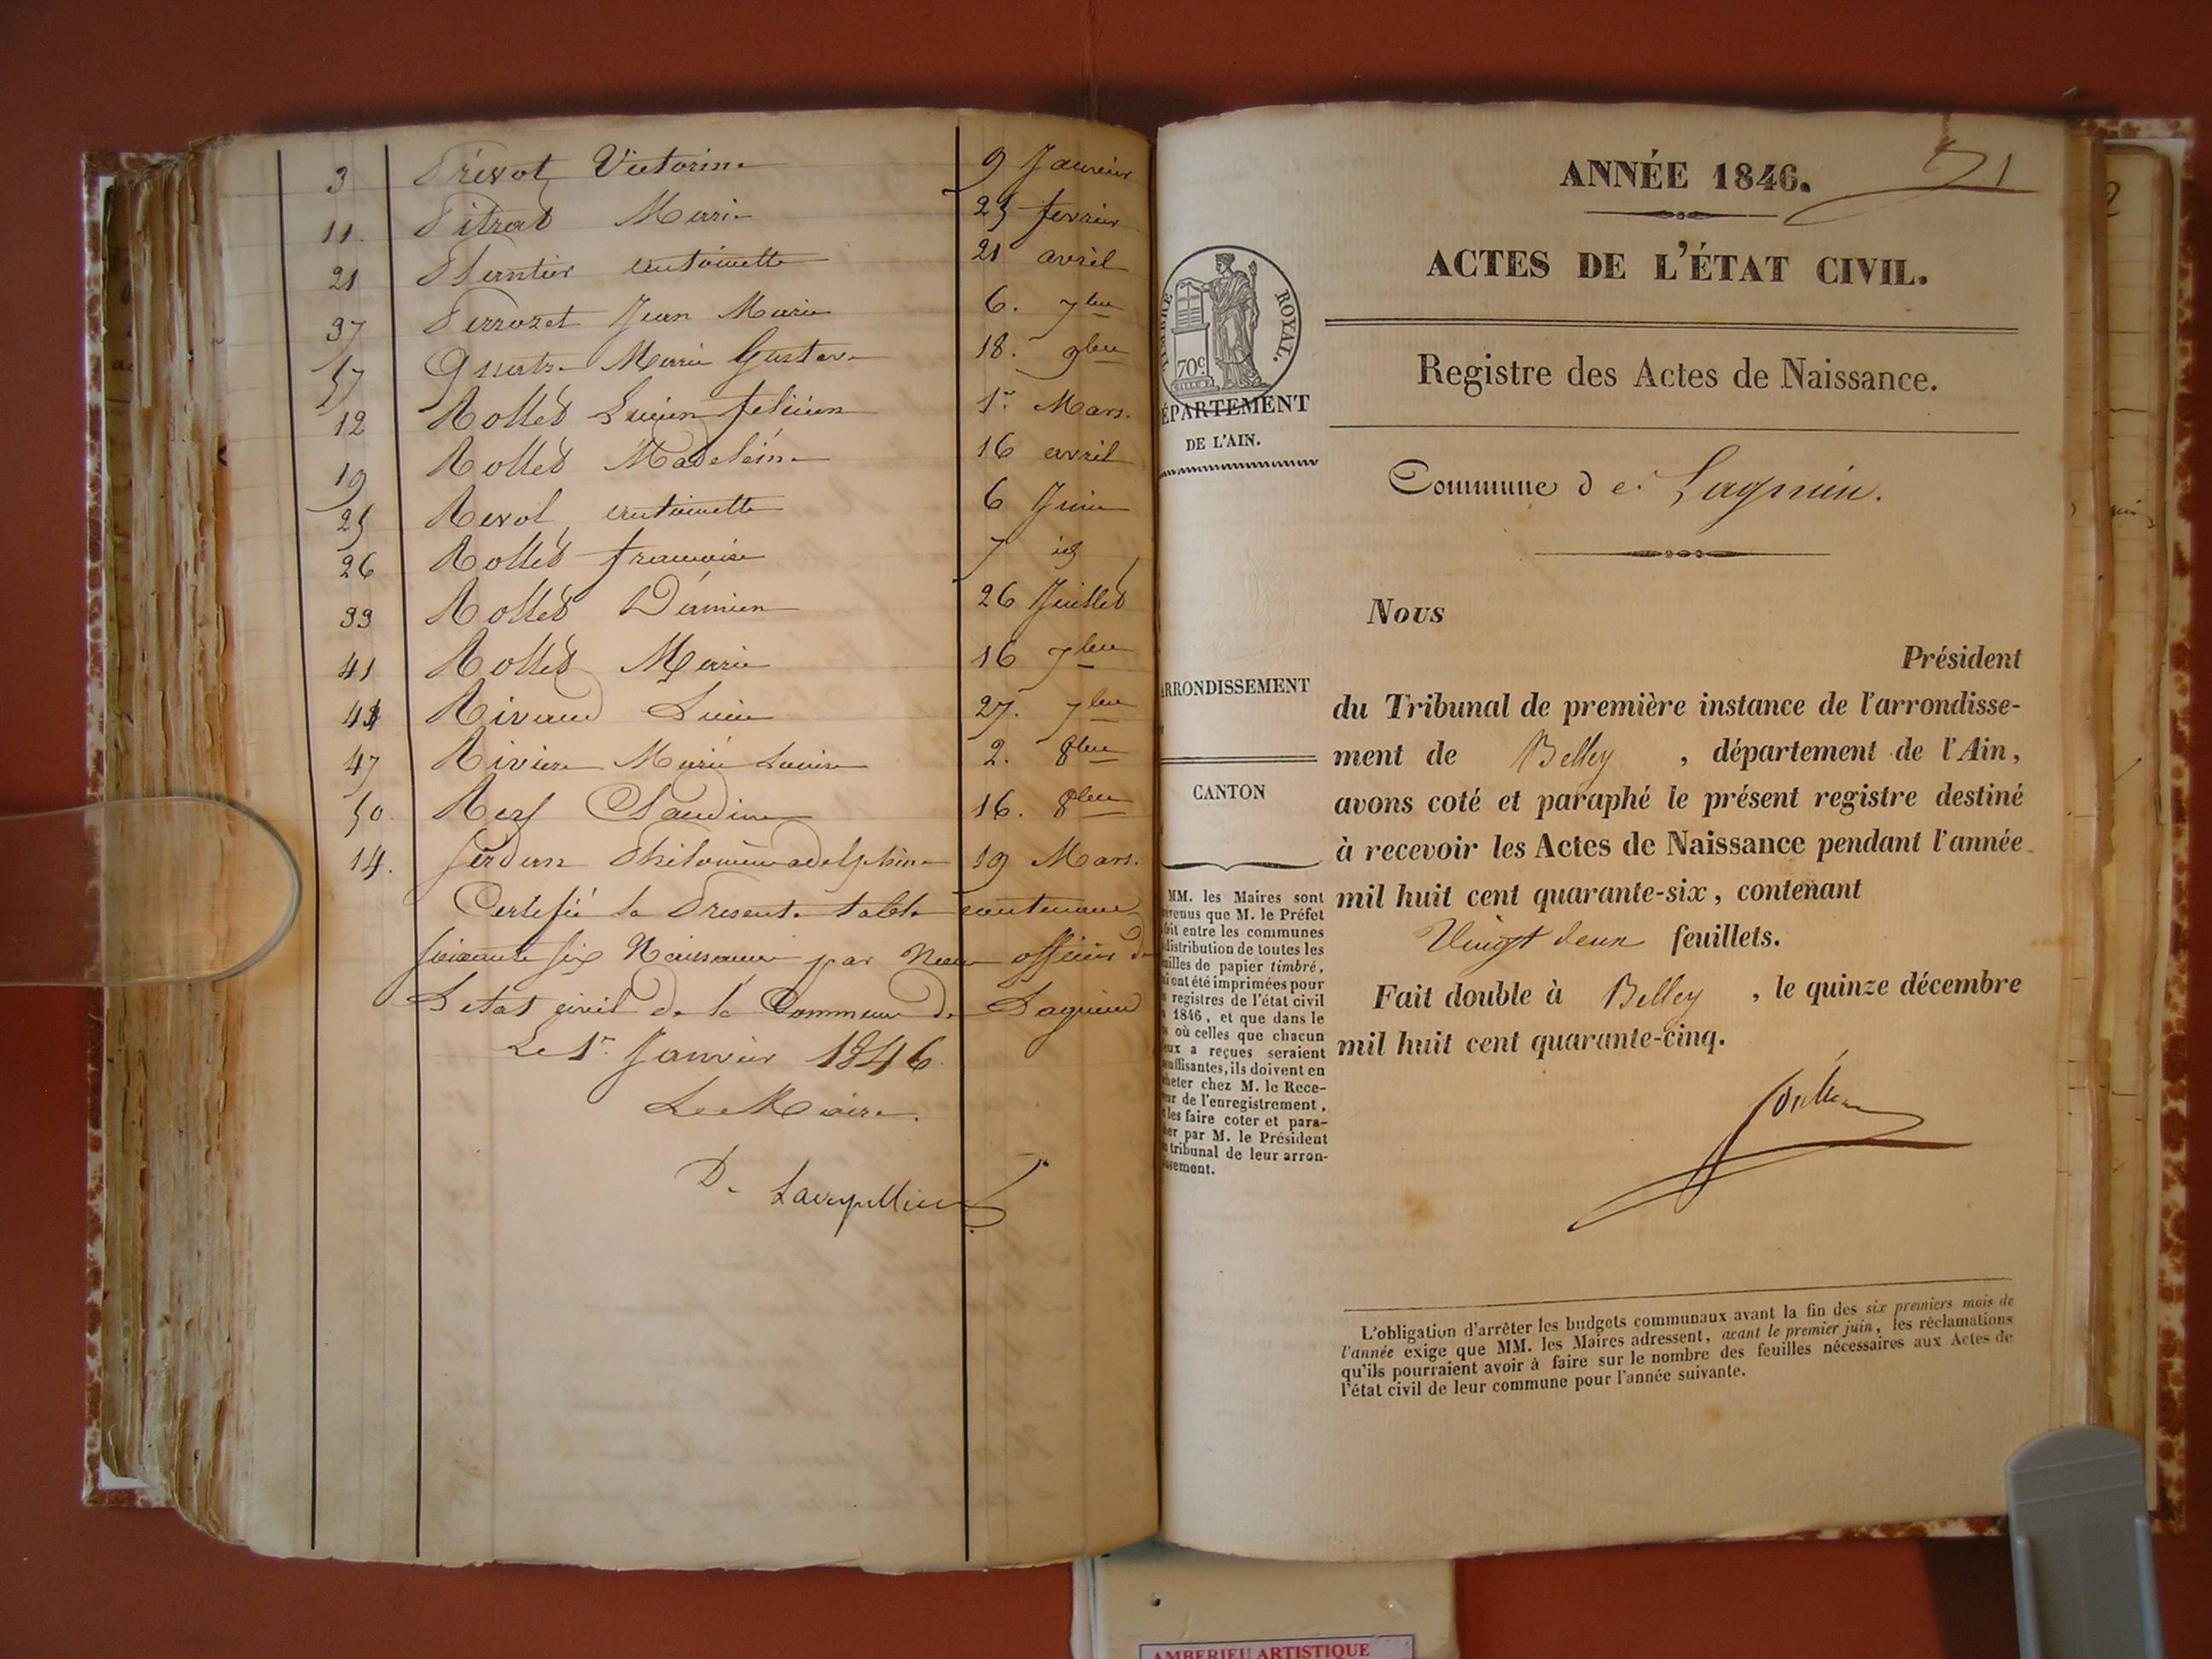 3 Prévot Victorine 9 Janvier
11. Pitrat Marie 25 fevrier
21 Plantier antoinette 21 avril
37 Perrozet Jean Marie 6. 7bre
57 Quatre Marie Gustave 18. 9bre
12 Rollet Lucien felicien 1er Mars.
19 Rollet Madeleine 16 avril
25 Revol antoinette 6 Juin
26 Rollet francoise 7 id
33 Rollet Damien 26 Juillet
41 Rollet Marie 16 7bre
43 Rivaud Lucie 27. 7bre
47 Riviere Marie Louise 2. 8bre
50. Rey Claudine 16. 8bre
14. Philomène adelphine 19 Mars.
Certifié la Presente table contenant
soixante six Naissances par Nous officier de
L'etat civil de la Commune de Lagnieu
Le 1er Janvier 1846.
Le Maire.
D.
ANNÉE 1846. 1
ACTES DE L'ÉTAT CIVIL.
TIMBRE ROYAL.
70c
Registre des Actes de Naissance.
ÉPARTEMENT
DE L'AIN.
Commune de Lagnieu.
Nous
Président
ARRONDISSEMENT
du Tribunal de première instance de l'arrondisse-
ment de Belley , département de l'Ain,
CANTON
avons coté et paraphé le présent registre destiné
à recevoir les Actes de Naissance pendant l'année
mil huit cent quarante-six, contenant
Vingt deux feuillets.
Fait double à Belley , le quinze décembre
mil huit cent quarante-cinq.
MM. les Maires sont
venus que M. le Préfet
fait entre les communes
distribution de toutes les
uilles de papier timbré,
i ont été imprimées pour
s registres de l'état civil
1846, et que dans le
s où celles que chacun
eux a reçues seraient
suffisantes, ils doivent en
heter chez M. le Rece-
ur de l'enregistrement,
les faire coter et para-
her par M. le Président
tribunal de leur arron-
issement.
L'obligation d'arrêter les budgets communaux avant la fin des six premiers mois de
l'année exige que MM. les Maires adressent, avant le premier juin, les réclamations
qu'ils pourraient avoir à faire sur le nombre des feuilles nécessaires aux Actes de
l'état civil de leur commune pour l'année suivante.
AMBERIEU ARTISTIQUE